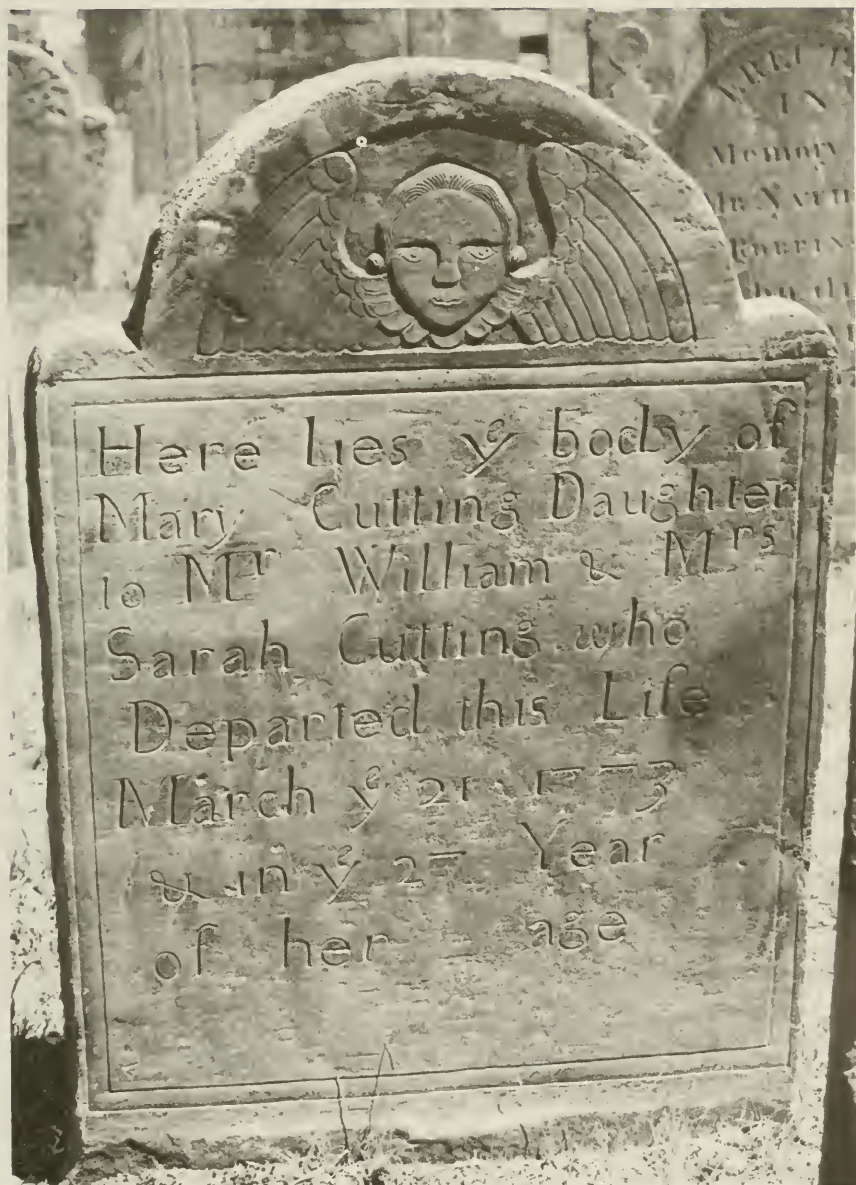 Here lies yᵉ body of
Mary Cutting Daughter
to Mʳ William & Mʳˢ
Sarah Cutting who
Departed this Life
March yᵉ 21 1773
& in yᵉ 27 Year
of her age
IN
Memory